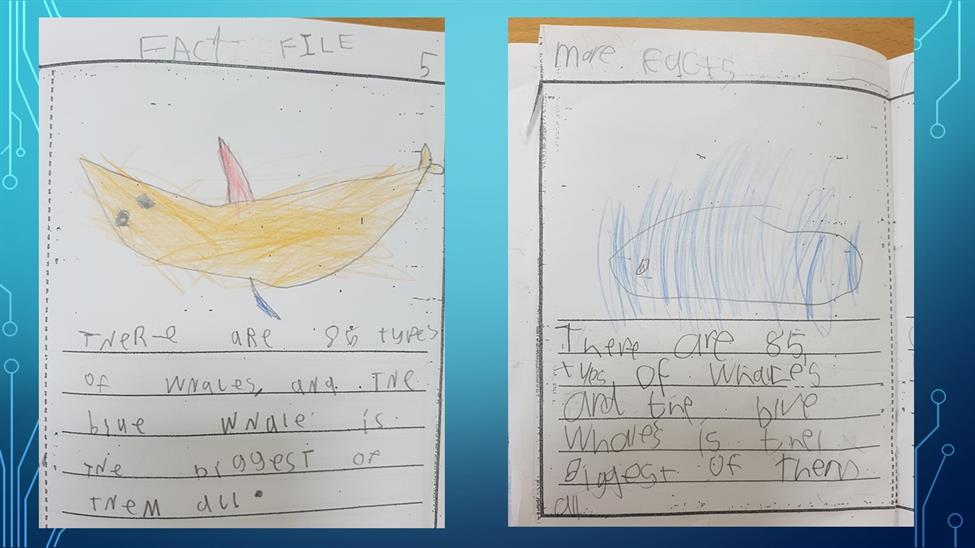 FACT FILE
5
THERE ARE 85 types
OF WHALES, and THE
blue WHALE is
THE biGGEST OF
THEM all.
more Facts
There are 85,
typs, of Whales
and the blue
Whales is the
Biggest of them
all